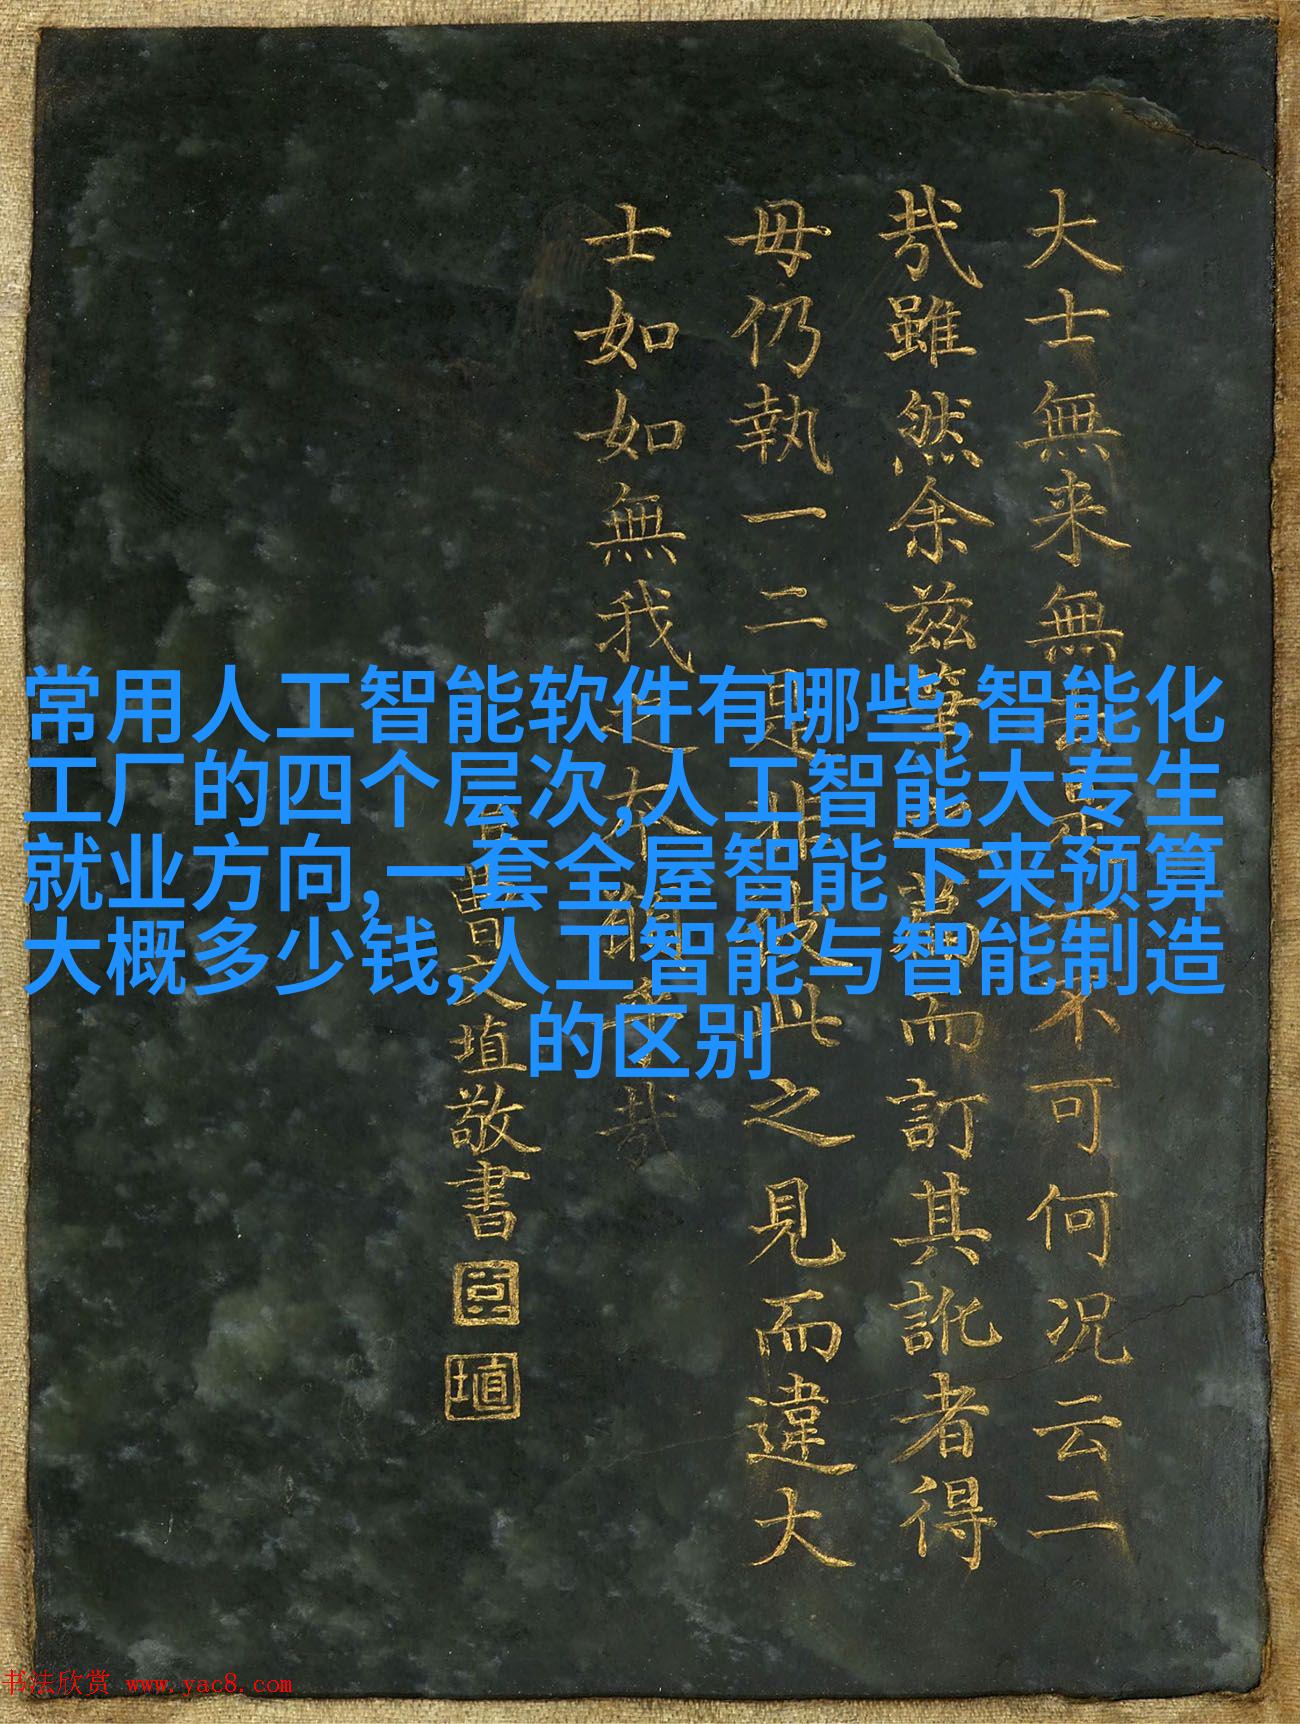 大士無来無去是一不可何况云二
哉雖然余兹筆之萬而訂其訛者得
毋仍執一二是非彼此之見而違大
士如如無我之本願也哉
臣曹文埴敬書
臣
埴
常用人工智能软件有哪些,智能化
工厂的四个层次,人工智能大专生
就业方向,一套全屋智能下来预算
大概多少钱,人工智能与智能制造
的区别
书法欣赏 www.yac8.com